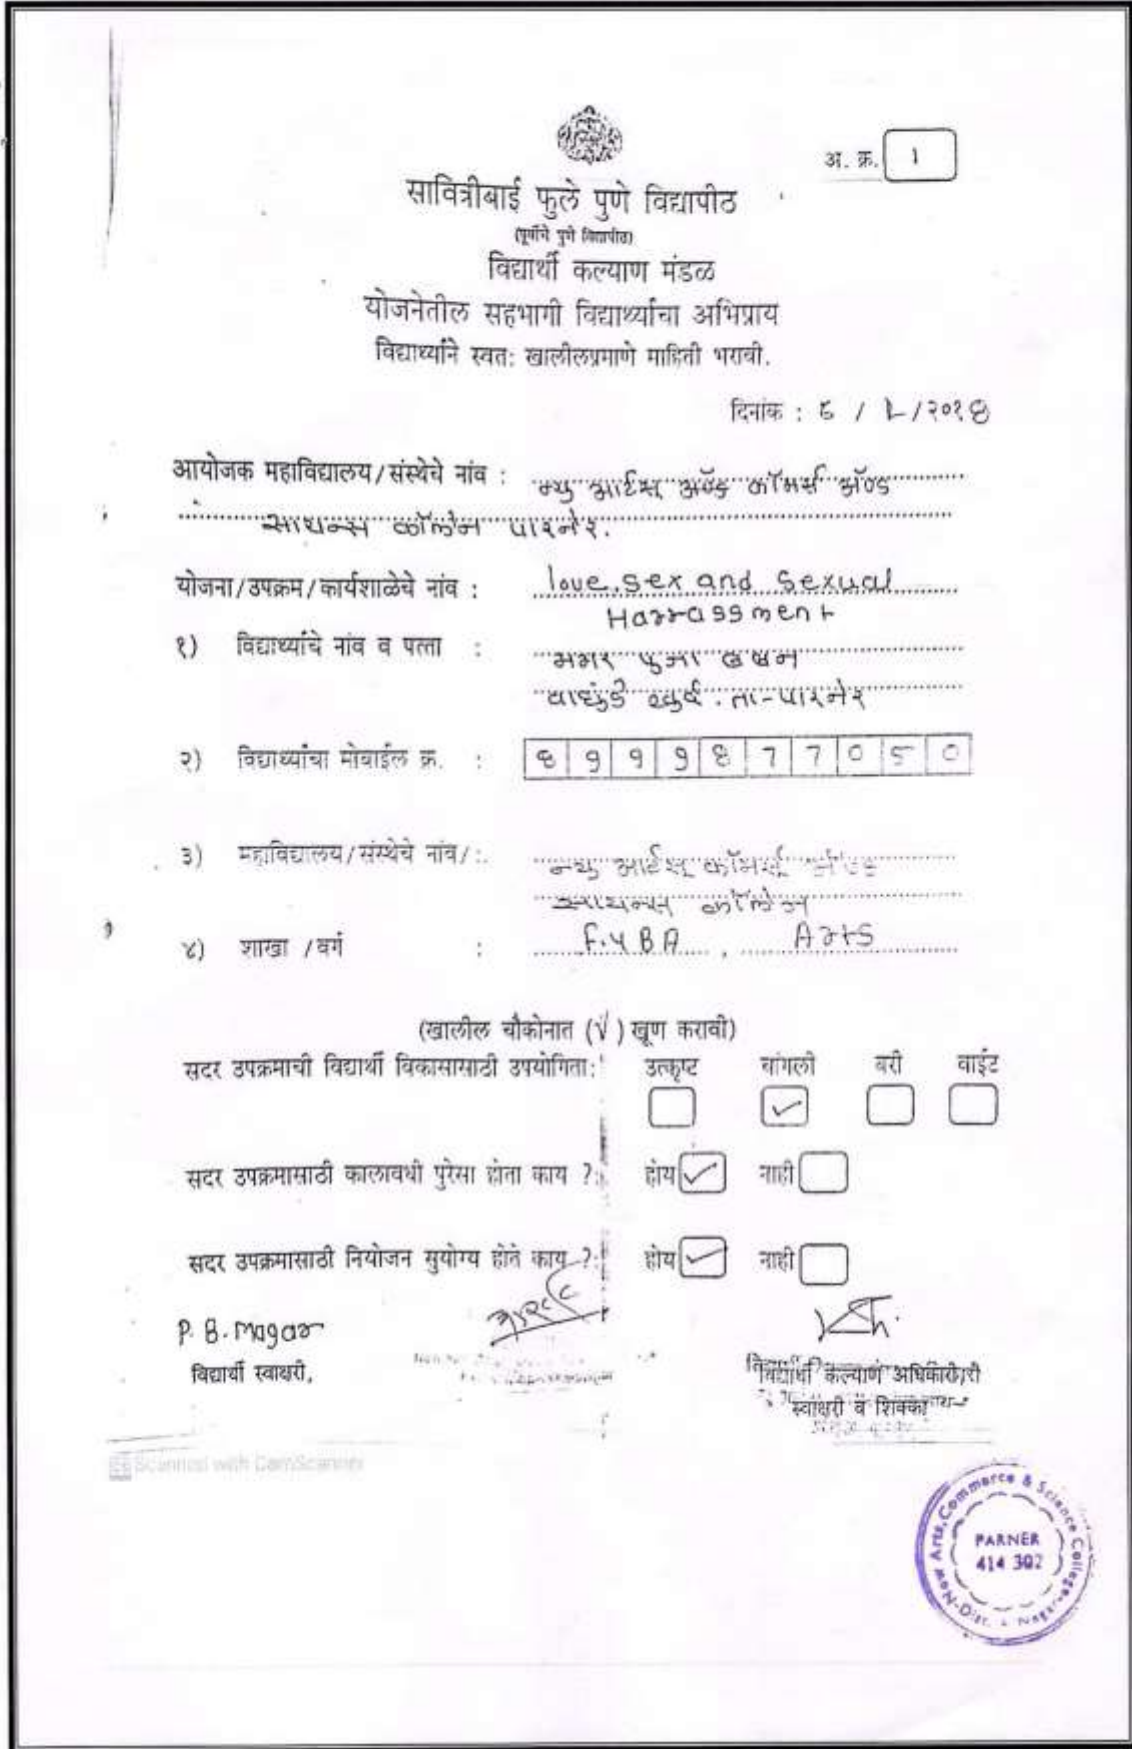 अ. क्र. 1
सावित्रीबाई फुले पुणे विद्यापीठ
(पूर्वीचे पुणे विद्यापीठ)
विद्यार्थी कल्याण मंडळ
योजनेतील सहभागी विद्यार्थ्यांचा अभिप्राय
विद्यार्थ्याने स्वत: खालीलप्रमाणे माहिती भरावी.
दिनांक : / /२०१
आयोजक महाविद्यालय/संस्थेचे नांव : न्यु आर्टस् अॅण्ड कॉमर्स अॅण्ड
सायन्स कॉलेज पारनेर.
योजना/उपक्रम/कार्यशाळेचे नांव : love, sex and sexual
Harrassment
१) विद्यार्थ्याचे नांव व पत्ता : मगर पुजा बबन
वाघुंडे खुर्द. ता-पारनेर
२) विद्यार्थ्याचा मोबाईल क्र. :
३) महाविद्यालय/संस्थेचे नांव/: न्यु आर्टस् कॉमर्स अॅण्ड
सायन्स कॉलेज
४) शाखा /वर्ग : F.Y BA , Arts
(खालील चौकोनात (√) खूण करावी)
सदर उपक्रमाची विद्यार्थी विकासासाठी उपयोगिता: उत्कृष्ट चांगली बरी वाईट
सदर उपक्रमासाठी कालावधी पुरेसा होता काय ?: होय ✓ नाही
सदर उपक्रमासाठी नियोजन सुयोग्य होते काय ?: होय ✓ नाही
P. B. Magar
विद्यार्थी स्वाक्षरी,
विद्यार्थी कल्याण अधिकारी
स्वाक्षरी व शिक्का
Scanned with CamScanner
New Arts, Commerce & Science College
PARNER
414 302